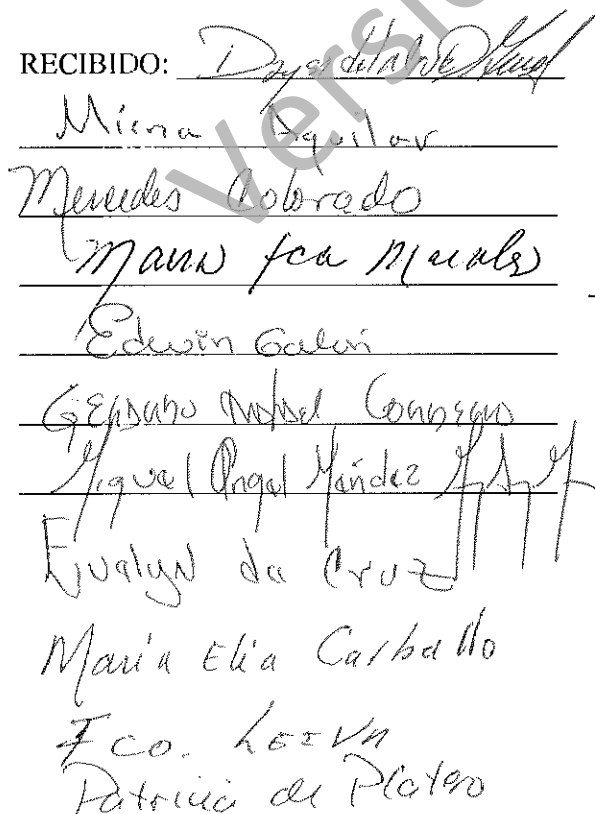 Versió
RECIBIDO:
Mirna Aguilar
Mercedes Colorado
Maria fca Morales
Edwin Galan
Miguel Angel Méndez
Evelyn de Cruz
Maria Elia Carballo
Fco. LEIVA
Patricia de Platero